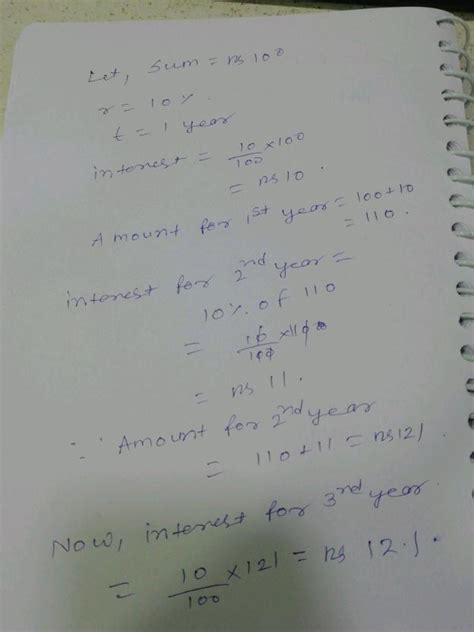 Let, Sum = rs 100
r = 10%.
t = 1 year
interest = 10/100 × 100
= rs 10.
Amount for 1st year = 100+10
= 110.
interest for 2nd year =
10% of 110
= 10/100 × 110
= rs 11.
∵ Amount for 2nd year
= 110 + 11 = rs 121
Now, interest for 3rd year.
= 10/100 × 121 = rs 12.1.